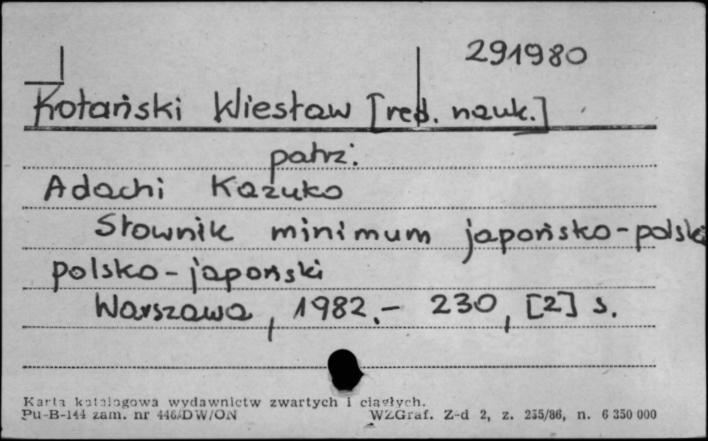 291980
Kotański Wiesław [red. nauk.]
patrz:
Adachi Kazuko
Słownik minimum japońsko-polski
polsko-japoński
Warszawa, 1982.- 230, [2] s.
Karta katalogowa wydawnictw zwartych i ciągłych.
Pu-B-144 zam. nr 446/DW/ON WZGraf. Z-d 2, z. 255/86, n. 6 350 000